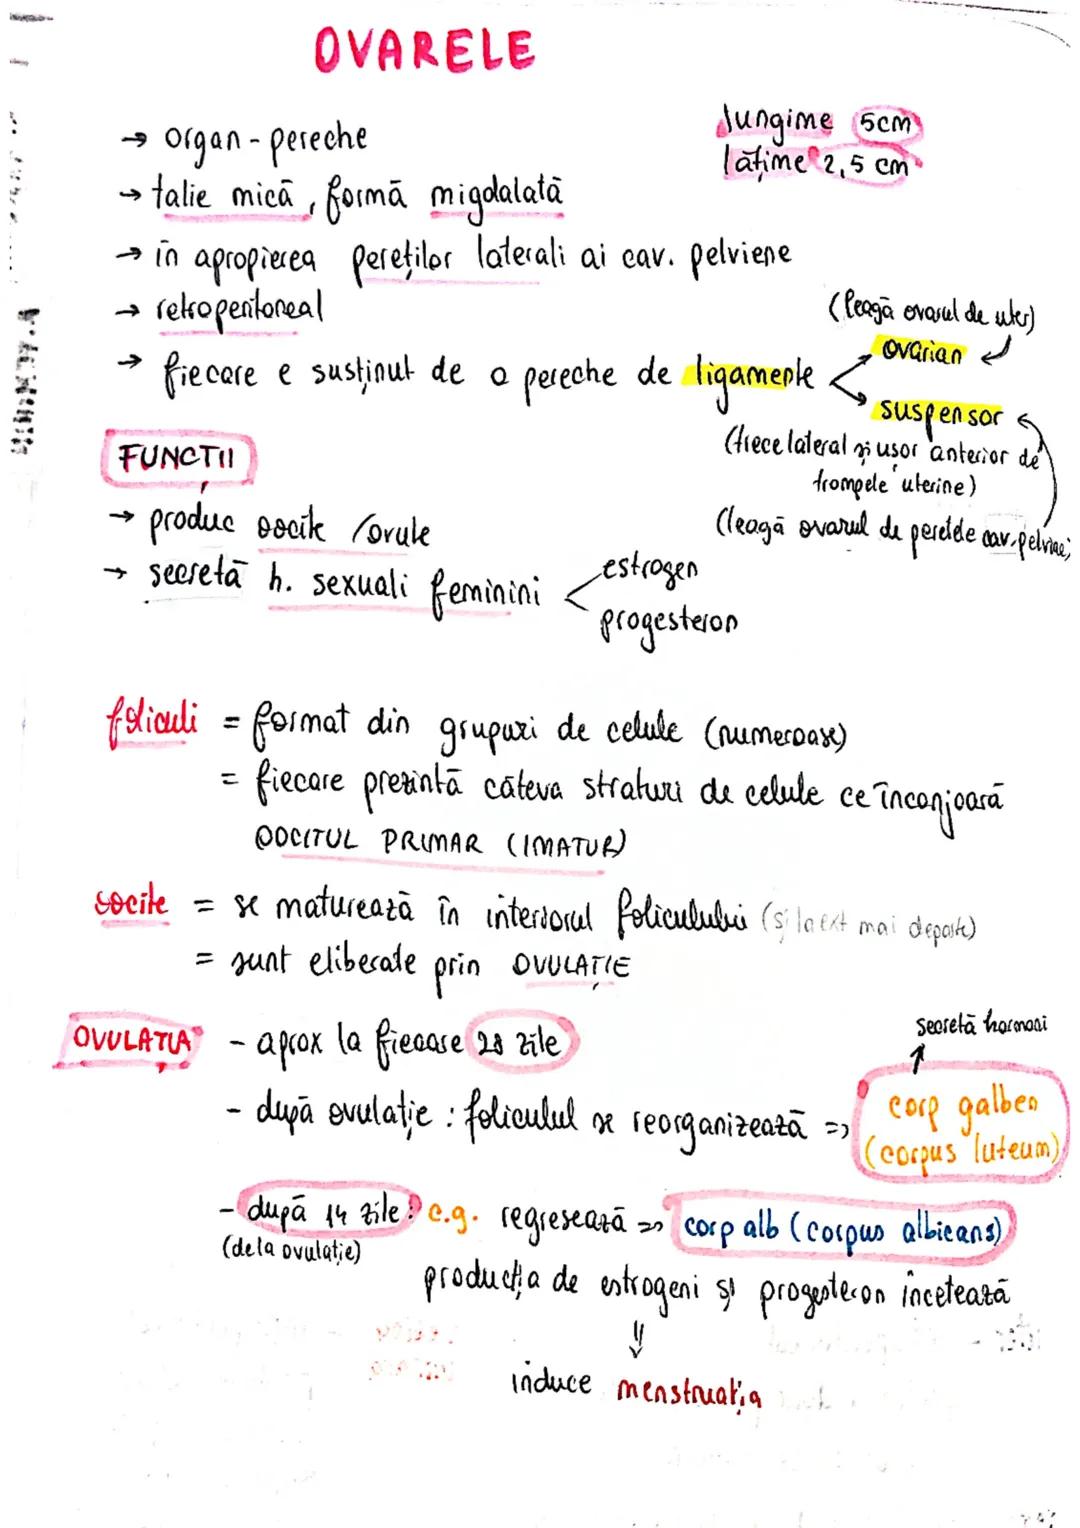 OVARELE
→ organ-pereche
lungime 5cm
lățime 2,5 cm
→ talie mică, formă migdalată
→ în apropierea pereților laterali ai cav. pelviene
→ retroperitoneal
(leagă ovarul de uter)
→ fiecare e susținut de o pereche de ligamente
ovarian
suspensor
(trece lateral și ușor anterior de
trompele uterine)
(leagă ovarul de peretele cav. pelviene)
FUNCȚII
→ produc oocite /ovule
→ secretă h. sexuali feminini
estrogen
progesteron
foliculi = format din grupuri de celule (numeroase)
= fiecare prezintă câteva straturi de celule ce înconjoară
OOCITUL PRIMAR (IMATUR)
oocite = se maturează în interiorul foliculului (și la ext mai departe)
= sunt eliberate prin OVULAȚIE
OVULAȚIA - aprox la fiecare 28 zile
secretă hormoni
- după ovulație : foliculul se reorganizează =>
corp galben
(corpus luteum)
- după 14 zile: c.g. regresează => corp alb (corpus albicans)
(de la ovulație)
producția de estrogeni și progesteron încetează
⇓
induce menstruația